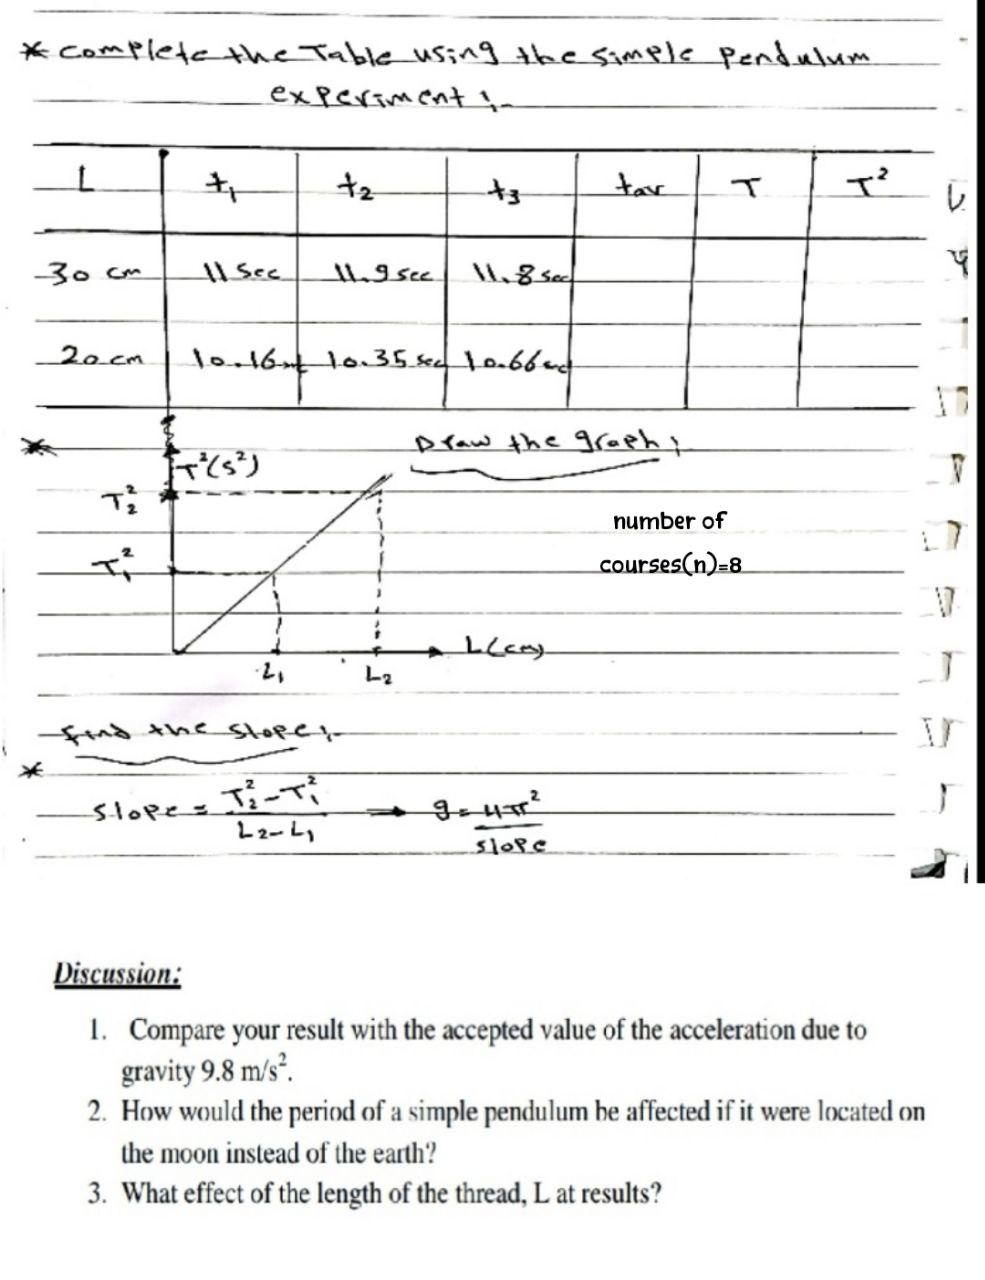 * Complete the Table using the simple Pendulum
experiment :-
L t₁ t₂ t₃ tav T T²
30 cm 11 sec 11.9 sec 11.8 sec
20 cm 10.16 10.35 sec 10.66 sec
* Draw the graph ;
T²(s²)
T₂²
number of
T₁²
courses(n)=8
L(cm)
L₁ L₂
find the slope :-
*
slope = T₂² - T₁² / L₂ - L₁ → g = 4π² / slope
Discussion:
1. Compare your result with the accepted value of the acceleration due to
gravity 9.8 m/s².
2. How would the period of a simple pendulum be affected if it were located on
the moon instead of the earth?
3. What effect of the length of the thread, L at results?